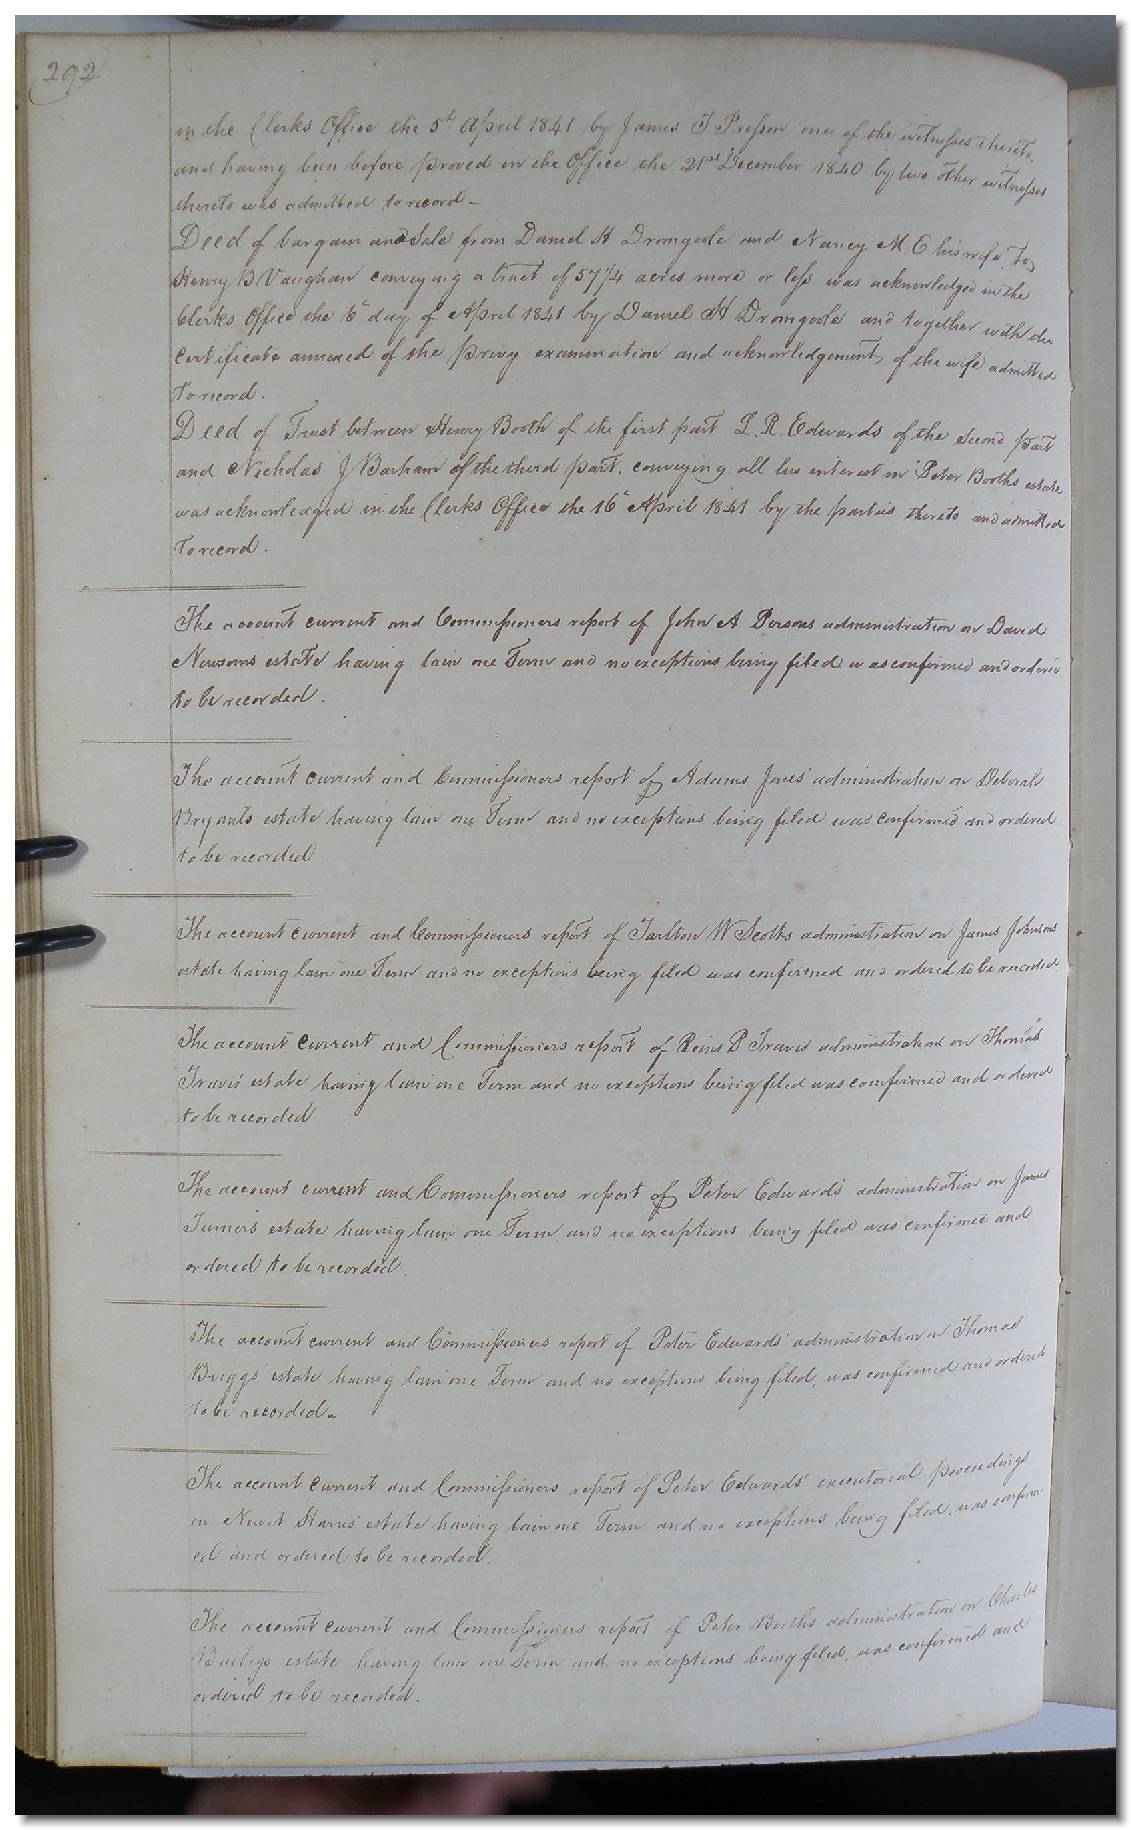 292
in the Clerks Office the 5th April 1841 by James T Presson one of the witnesses thereto,
and having been before proved in the Office the 21st December 1840 by two other witnesses
thereto was admitted to record -
Deed of bargain and Sale from Daniel H Dromgoole and Nancy M. E his wife, to
Henry B Vaughan conveying a tract of 57 1/4 acres more or less was acknowledged in the
Clerks Office the 6th day of April 1841 by Daniel H Dromgoole and together with the
Certificate annexed of the privy examination and acknowledgement of the wife admitted
to record.
Deed of Trust between Henry Booth of the first part L. R. Edwards of the Second part
and Nicholas J Barham of the third part, conveying all his interest in Peter Booths estate
was acknowledged in the Clerks Office the 16th April 1841 by the parties thereto and admitted
to record.
The account current and Commissioners report of John A Persons administration on David
Newsoms estate having lain one Term and no exceptions being filed was confirmed and ordered
to be recorded.
The account current and Commissioners report of Adams Jones' administration on Deborah
Bryants estate having lain one Term and no exceptions being filed was confirmed and ordered
to be recorded
The account current and Commissioners report of Tarlton W Scotts administration on James Johnsons
estate having lain one Term and no exceptions being filed was confirmed and ordered to be recorded
The account current and Commissioners report of P Travis administration on Thomas
Travis' estate having lain one Term and no exceptions being filed was comfirmed and ordered
to be recorded
The account current and Commissioners report of Peter Edwards administration on James
Turners estate having lain one Term and no exceptions being filed was confirmed and
ordered to be recorded.
The account current and Commissioners report of Peter Edwards' administration on Thomas
Briggs' estate having lain one Term and no exceptions being filed, was confirmed and ordered
to be recorded.
The account current and Commissioners report of Peter Edwards' executoreal proceedings
on Newit Harris' estate having lain one Term and no exceptions being filed, was confirm
ed and ordered to be recorded.
The account current and Commissioners report of Peter Booths administration on Charles
Baileys estate having lain one Term and no exceptions being filed, was confirmed and
ordered to be recorded.